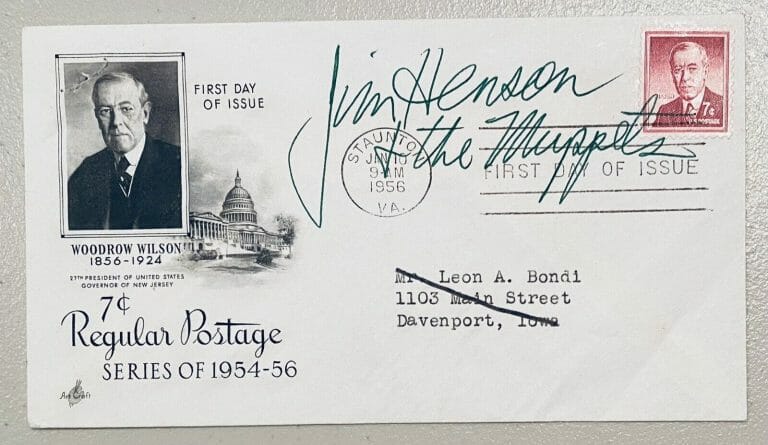 FIRST DAY
OF ISSUE
WOODROW WILSON
1856-1924
27TH PRESIDENT OF UNITED STATES
GOVERNOR OF NEW JERSEY
7¢
Regular Postage
SERIES OF 1954-56
Art Craft
Jim Henson
& the Muppets
STAUNTON
JAN 10
9-AM
1956
VA.
FIRST DAY OF ISSUE
7¢
POSTAGE
Mr. Leon A. Bondi
1103 Main Street
Davenport, Iowa